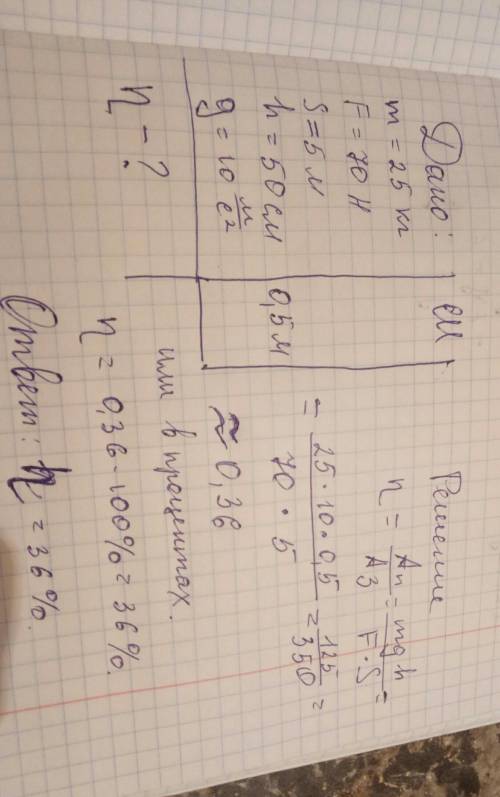 Дано:
m = 25 кг
F = 70 Н
S = 5 м
h = 50 см
g = 10 м/с²
η - ?
СИ
0,5 м
Решение
η = Aп/Aз = mgh/F·S =
= 25·10·0,5/70·5 = 125/350 =
≈ 0,36
или в процентах.
η = 0,36·100% = 36%.
Ответ: η = 36%.